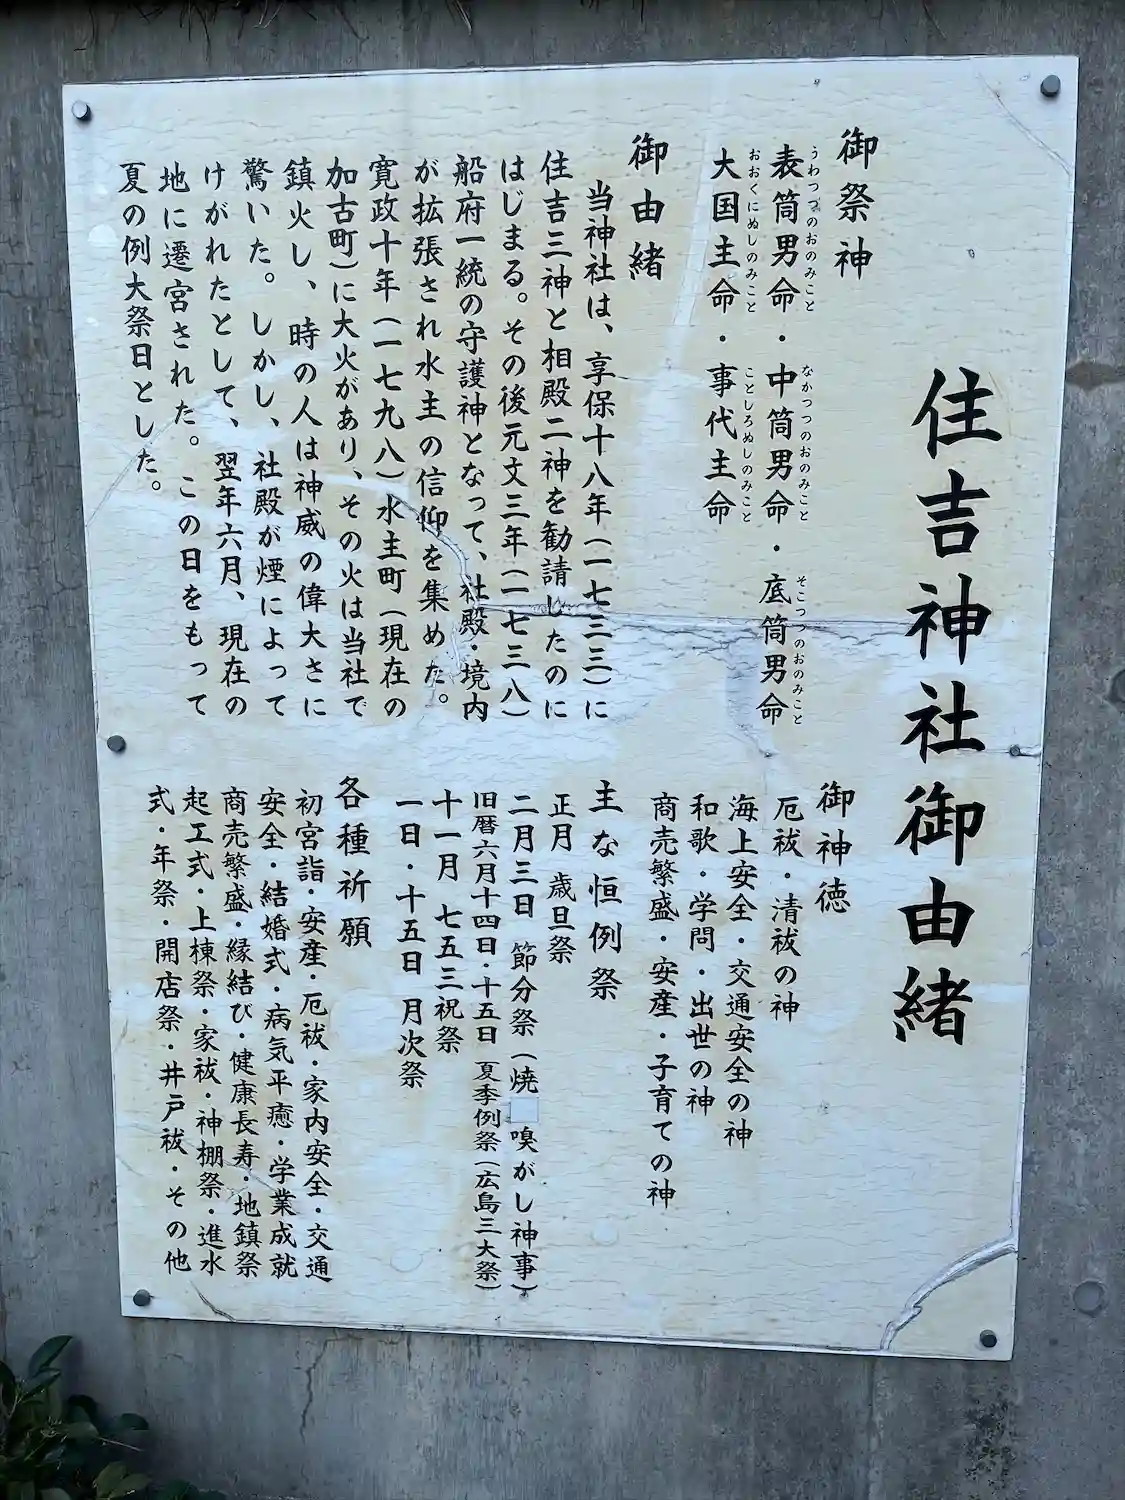 住吉神社御由緒
御祭神
表筒男命・中筒男命・底筒男命
うわつつのおのみこと なかつつのおのみこと そこつつのおのみこと
大国主命・事代主命
おおくにぬしのみこと ことしろぬしのみこと
御由緒
当神社は、享保十八年(一七三三)に
住吉三神と相殿二神を勧請したのに
はじまる。その後元文三年(一七三八)
船府一統の守護神となって、社殿・境内
が拡張され水主の信仰を集めた。
寛政十年(一七九八)水主町(現在の
加古町)に大火があり、その火は当社で
鎮火し、時の人は神威の偉大さに
驚いた。しかし、社殿が煙によって
けがれたとして、翌年六月、現在の
地に遷宮された。この日をもって
夏の例大祭日とした。
御神徳
厄祓・清祓の神
海上安全・交通安全の神
和歌・学問・出世の神
商売繁盛・安産・子育ての神
主な恒例祭
正月 歳旦祭
二月三日 節分祭(焼 嗅がし神事)
旧暦六月十四日・十五日 夏季例祭(広島三大祭)
十一月 七五三祝祭
一日・十五日 月次祭
各種祈願
初宮詣・安産・厄祓・家内安全・交通
安全・結婚式・病気平癒・学業成就
商売繁盛・縁結び・健康長寿・地鎮祭
起工式・上棟祭・家祓・神棚祭・進水
式・年祭・開店祭・井戸祓・その他